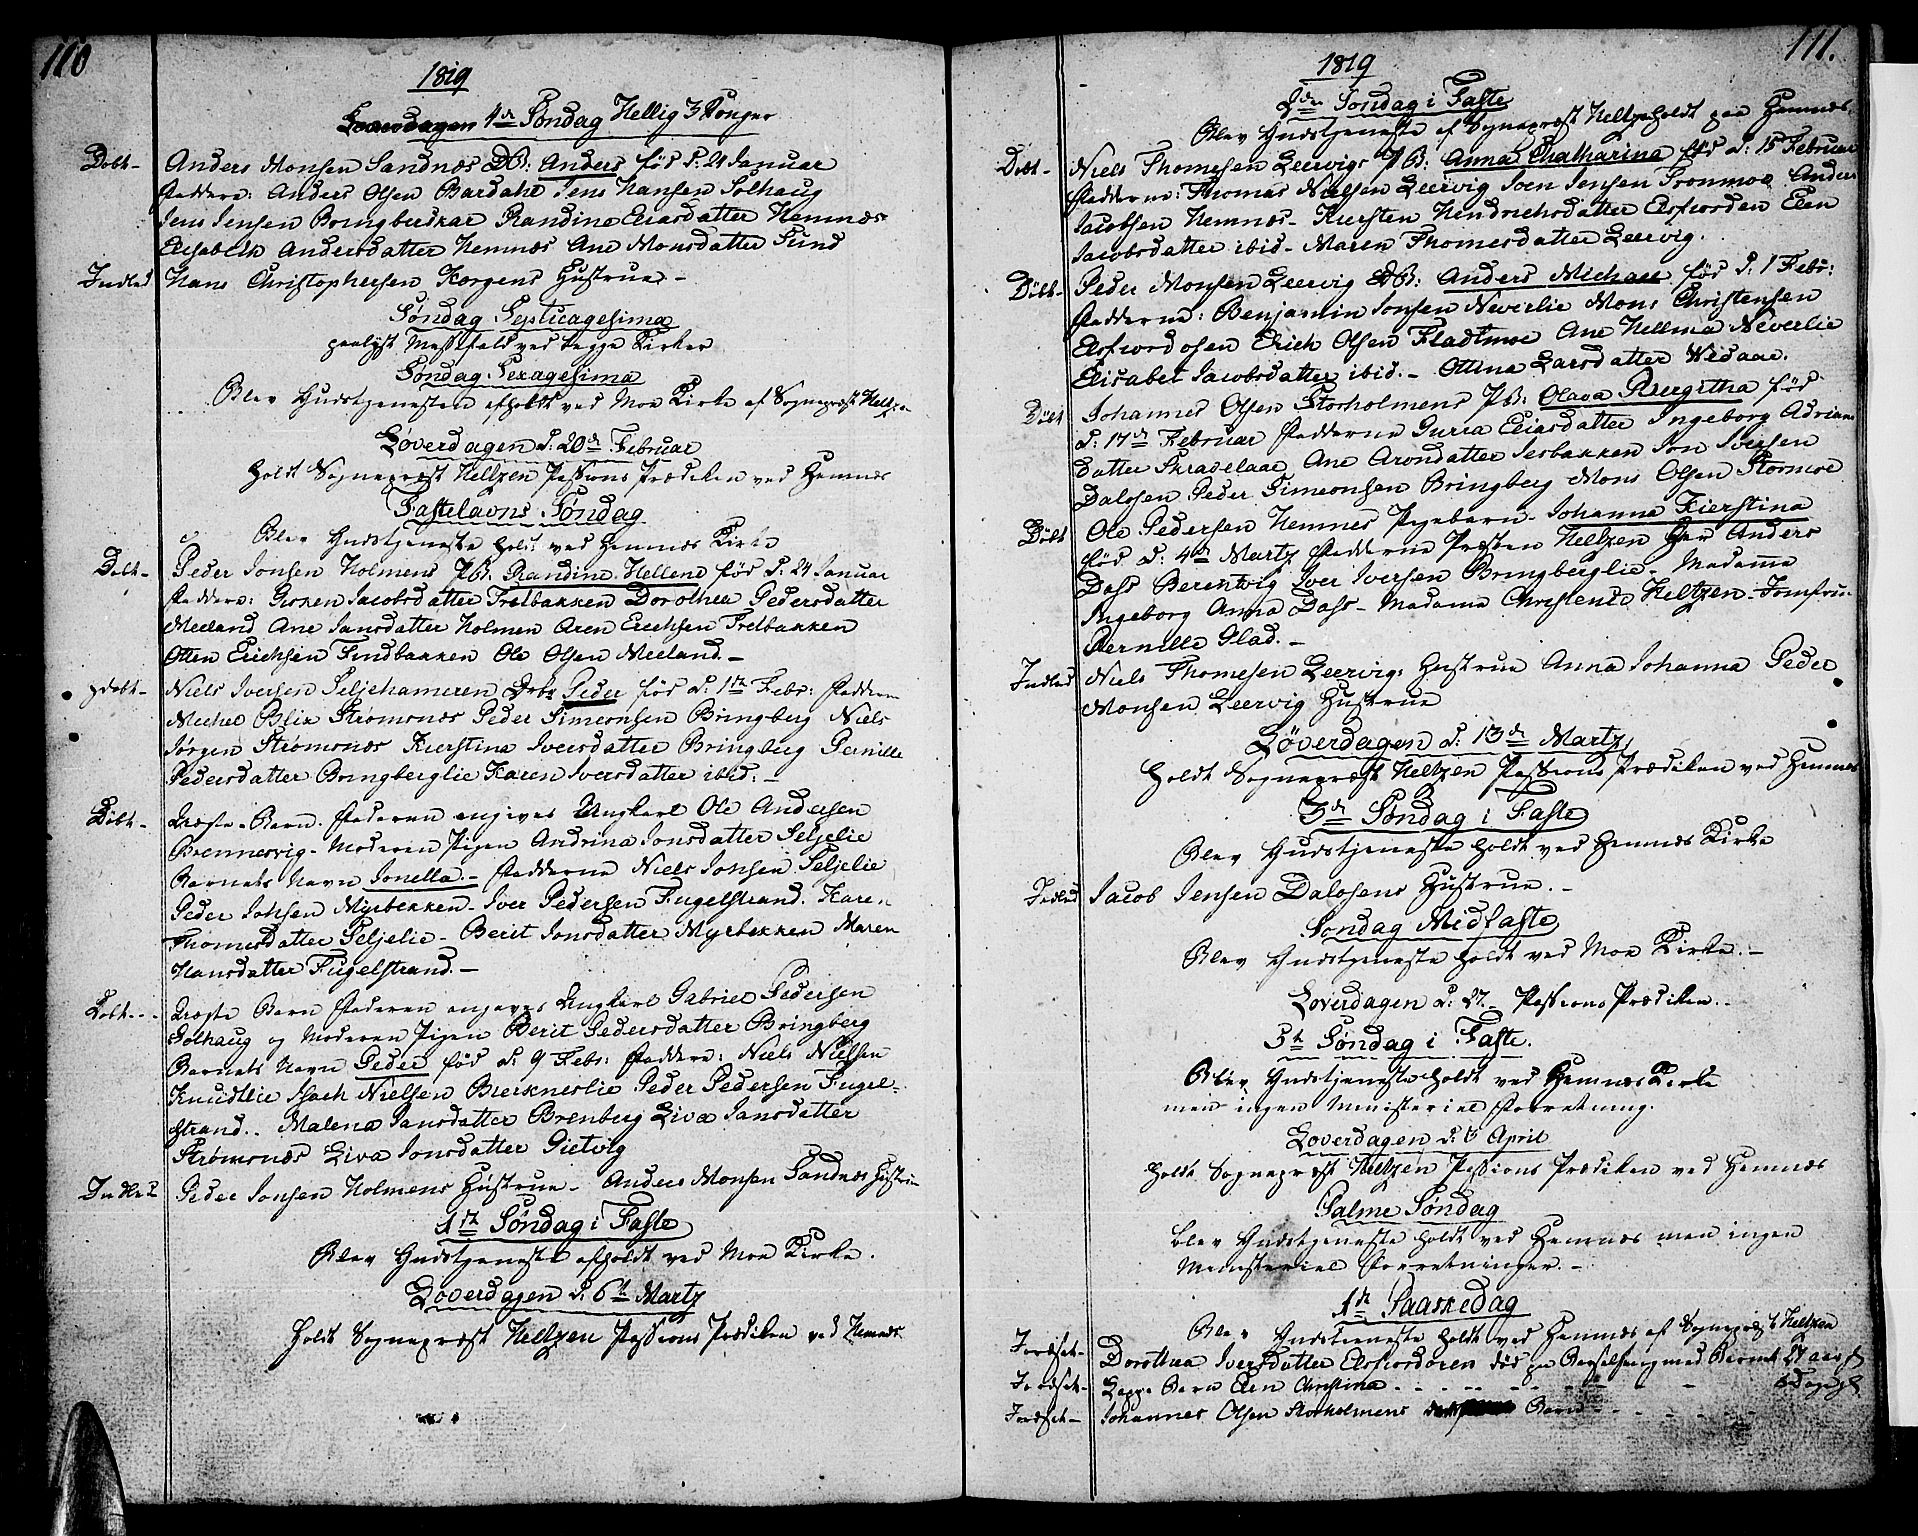 110
1819
4de Søndag Hellig 3 Konger
Døbt - Anders Monsen Sandnæs DB: Anders fød d: 24 Januar
Faddere: Anders Olsen Bardahl Jens Hansen Solhaug
Jens Jensen Bringbeskar Randine Eliasdatter Hemnæs
Elisabeth Andersdatter Hemnæs Ane Monsdatter Sund
Indled Hans Christophersen Korgens Hustrue -
Søndag Septuagesima
Messefald ved begge Kirker
Søndag Sexagesima
Blev Gudstjenesten afholdt ved Moe Kirke af Sognepræst Heltzen
Løverdagen d: 20de Februar
Holdt Sognepræst Heltzen Passions Prædiken ved Hemnæs
Fastelavns Søndag
Blev Gudstjeneste holdt ved Hemnæs Kirke
Døbt - Peder Jonsen Holmens PB: Randine Hellene fød d: 24 Januar
Faddere: Jacobsdatter Fretbakken Dorothea Pedersdatter
Meeland Ane Jansdatter Holmen Aren Erichsen Fretbakken
Otten Erichsen Findbakken Ole Olsen Meeland. -
Døbt - Niels Iversen Seljehameren Drb: Peder fød d: 1ste Febr: Faddere
Michel Blix Strømsnæs Peder Simeonsen Bringberg Niels
Jørgen Strømsnæs Kierstina Iversdatter Bringberg Pernille
Pedersdatter Bringberglie Karen Iversdatter ibid. -
Døbt - Uægte Barn. Faderen angives Ungkarl Ole Andersen
Brennesvig - Moderen Pigen Andrina Jonsdatter Seljelie
Barnets Navn Jonella. - Fadderne Niels Jonsen Seljelie
Peder Jonsen Myrbekken - Iver Pedersen Fugelstrand. Karen
Thomesdatter Seljelie - Berit Jonsdatter Myrbekken Maren
Hansdatter Fugelstrand. -
Døbt - - Uægte Barn Faderen angives Ungkarl Gabriel Pedersen
Solhaug og Moderen Pigen Berit Pedersdatter Bringberg
Barnets Navn Peder fød d: 9 Febr: Faddere: Niels Nielsen
Knudtlie Isach Nielsen Bierkneslie Peder Pedersen Fugel-
strand.. Malena Jansdatter Brenberg Liva Jansdatter
Strømsnæs Liva Jonsdatter Sietvig
Indled Peder Jonsen Holmens Hustrue - Anders Monsen Sandnæs Hustrue
1ste Søndag i Faste
Blev Gudstjeneste afholdt ved Moe Kirke.
Løverdagen d. 6te Martz
Holdt Sognepræst Heltzen Passions Prædiken ved Hemnæs
111.
1819
2den Søndag i Faste
Blev Gudstjeneste af Sognepræst Heltzen holdt paa Hemnæs.
Døbt - Niels Thomesen Leervigs PB: Anna Chatharina fød d: 15 Februar
Fadderne: Thomas Nielsen Leervig Sven Jensen Anders
Jacobsen Hemnæs - Kiersten Hendrichsdatter Elsfiorden Elen
Jacobsdatter ibid - Maren Thomesdatter Leervig.
Døbt - Peder Monsen Leervig DB: Anders Michael fød d. 1 Febr:
Fadderne: Benjamin Jonsen Neverlie Mons Christensen
Elsfiordosen Erich Olsen Fladtmoe Ane Hellma Neverlie
Elisabet Jacobsdatter ibid. - Ottina Larsdatter Wedaae.
Døbt Johannes Olsen Storholmens PB: Olava Bergitha fød
d. 17de Februar Fadderne Guria Eliasdatter Ingeborg Adrians
datter Skravelaae Ane Aronsdatter Lesbakken Jon Iversen
Dalosen Peder Simeonsen Bringberg Mons Olsen Stormoe
Døbt Ole Pedersen Hemnes Pigebarn - Johanna Kierstina
fød d: 4de Martz Fadderne Præsten Heltzen Hr Anders
Dass Berentvig Iver Iversen Bringberglie - Madame
Ingeborg Anna Dass - Madame Christence Heltzen - Jomfrue
Pernille Glad. -
Indled Niels Thomesen Leervigs Hustrue Anna Johanna Peder
Monsen Leervig Hustrue
Løverdagen d. 13de Martz
Holdt Sognepræst Heltzen Passions Prædiken ved Hemnæs
3de Søndag i Faste
Blev Gudstjeneste holdt ved Hemnæs Kirke
Indled Jacob Jensen Dalosens Hustrue. -
Søndag Midfaste
Blev Gudstjeneste holdt ved Moe Kirke. -
Løverdagen d. 27. - Passions Prædiken. -
5te Søndag i Faste.
Blev Gudstjeneste holdt ved Hemnæs Kirke
men ingen Ministeriel Forretning.
Løverdagen d. 3 April
Holdt Sognepræst Heltzen Passions Prædiken ved Hemnæs
Palme Søndag
blev Gudstjeneste holdt ved Hemnæs men ingen
Ministeriel Forretninger. -
1ste Paaskedag
Blev Gudstjeneste holdt ved Hemnæs af Sognepræst Heltzen
Jordset - Dorothea Iversdatter Elsfiordosen død paa Barselseng med Barnet 27 aar gl
Jordset - Lappe Barn Elen Christina - - - - - - - - 8 Dage gl
Jordset - Johannes Olsen Storholmens Barn - - - - - -